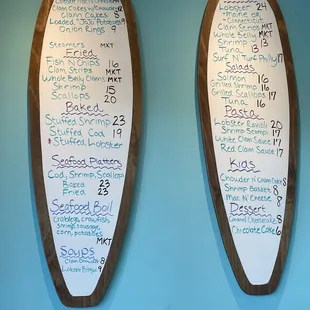 Clam Cakes w/Chowder
Clam Cakes 8
Loaded "Jojo" Potatoes
Onion Rings 9
Steamers MKT
Fried
Fish N Chips 16
Clam Strips MKT
Whole Belly Clams MKT
Shrimp 15
Scallops 20
Baked
Stuffed Shrimp 23
Stuffed Cod 19
Stuffed Lobster
Seafood Platters
Cod, Shrimp, Scallops
Baked 23
Fried 23
Seafood Boil
Crablegs, crawfish
shrimp, sausage,
corn, potatoes
MKT
Soups
Clam Chowder
Lobster Bisque
Lobster 24
Connecticut
Clam Strip MKT
Whole Belly MKT
Shrimp 13
Tuna 13
Surf N' Turf Philly 17
Salads
Salmon 16
Grilled Shrimp 16
Grilled Scallops 17
Tuna 16
Pasta
Lobster Ravioli 20
Shrimp Scampi 17
White Clam Sauce 17
Red Clam Sauce 17
Kids
Chowder N Clam Cakes 8
Shrimp Basket 8
Mac N' Cheese 8
Dessert
Caramel Cheesecake 8
Chocolate Cake 6